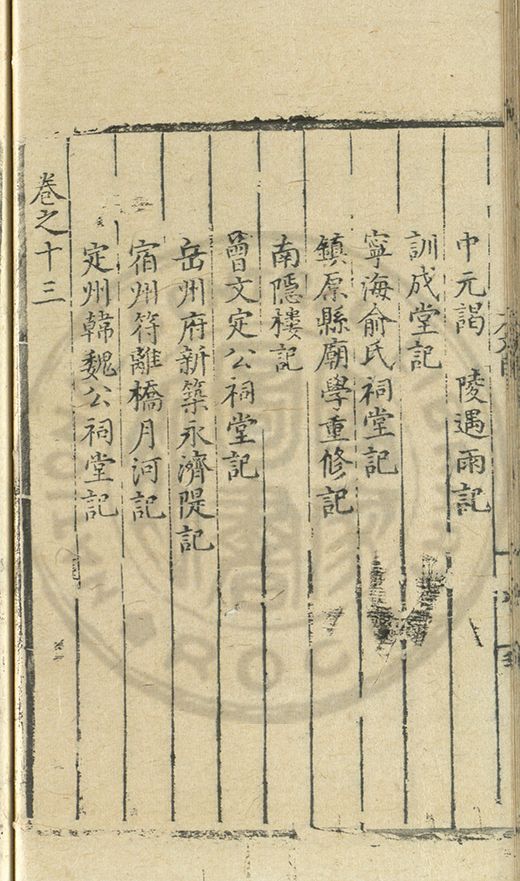 中元謁　陵遇雨記
訓成堂記
寧海俞氏祠堂記
鎮原縣廟學重修記
南隱樓記
曾文定公祠堂記
岳州府新築永濟隄記
宿州符離橋月河記
定州韓魏公祠堂記
卷之十三